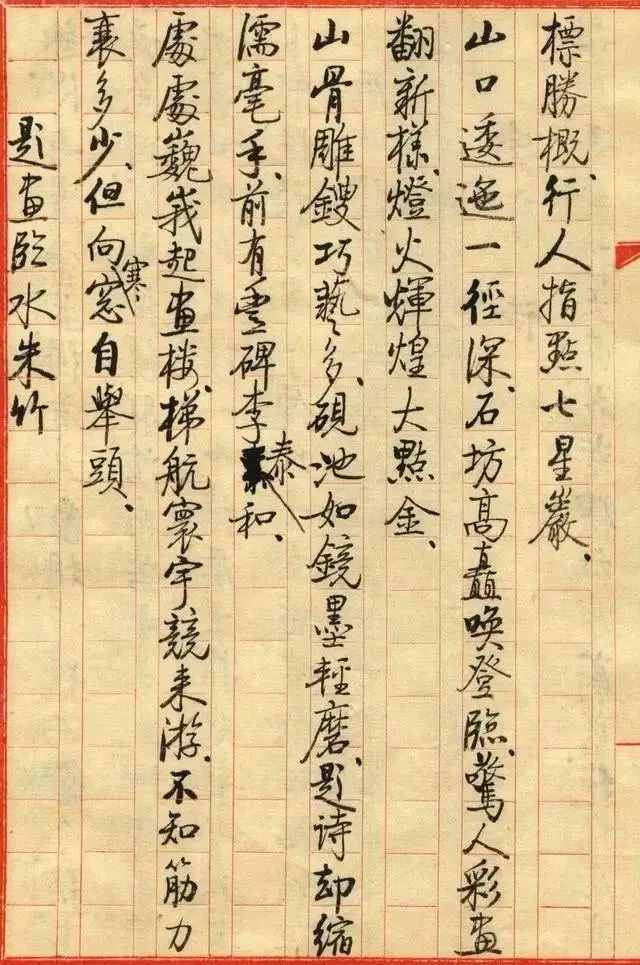 標勝概、行人指點七星巖、
山口逶迤一徑深、石坊高矗喚登臨、驚人彩畫
翻新樣、燈火輝煌大點金、
山骨雕鎪巧藝多、硯池如鏡墨輕磨、題诗却缩
濡毫手、前有豐碑李泰和、
處處巍峩起畫楼、梯航寰宇競来游、不知筋力
衰多少、但向寒窓自舉頭、
題畫臨水朱竹